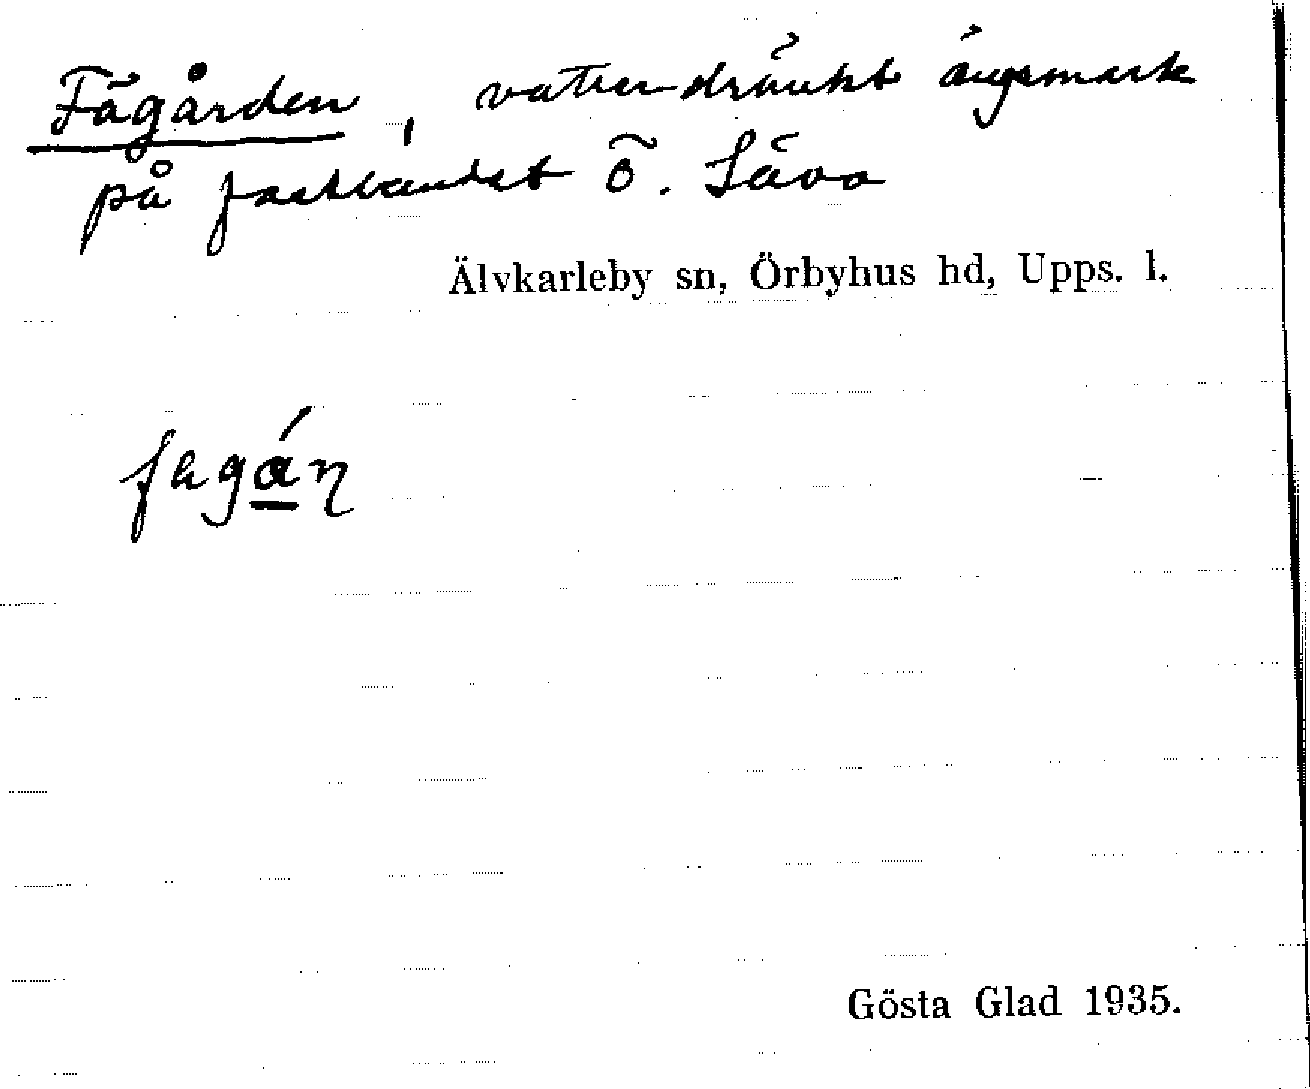 Fägården, vattendränkt ängsmark
på fastlandet Ö. Sävo
Älvkarleby sn, Örbyhus hd, Upps. l.
Gösta Glad 1935.